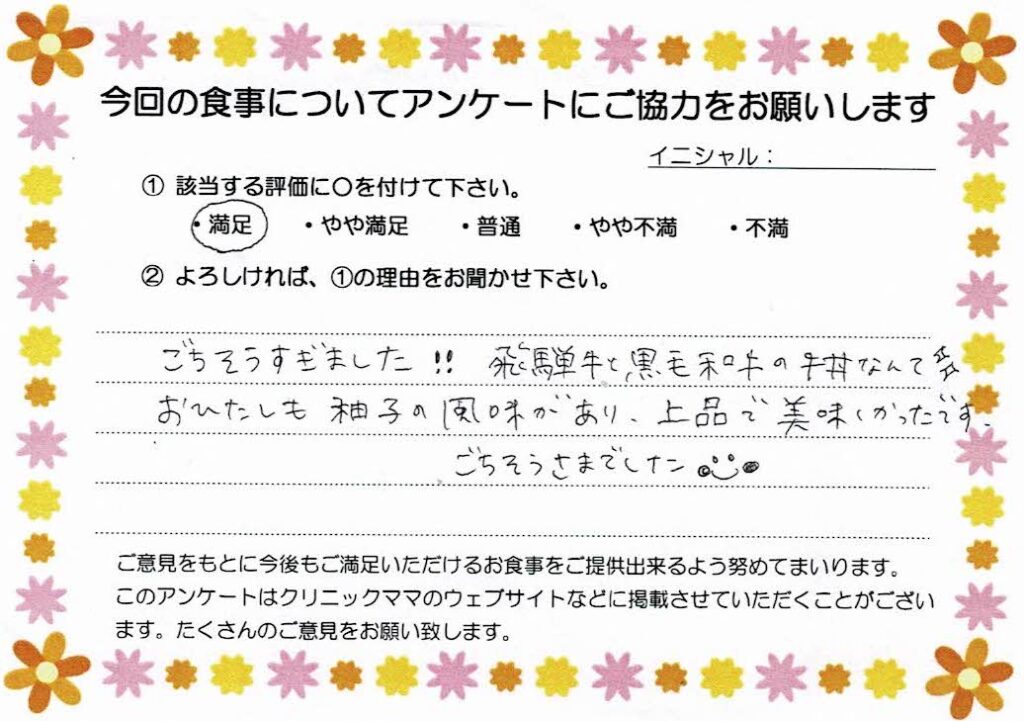 今回の食事についてアンケートにご協力をお願いします
イニシャル：
① 該当する評価に○を付けて下さい。
・満足 ・やや満足 ・普通 ・やや不満 ・不満
② よろしければ、①の理由をお聞かせ下さい。
ごちそうすぎました!! 飛騨牛と黒毛和牛の牛丼なんて
おひたしも 柚子の風味があり、上品で美味しかったです。
ごちそうさまでした
ご意見をもとに今後もご満足いただけるお食事をご提供出来るよう努めてまいります。
このアンケートはクリニックママのウェブサイトなどに掲載させていただくことがござい
ます。たくさんのご意見をお願い致します。